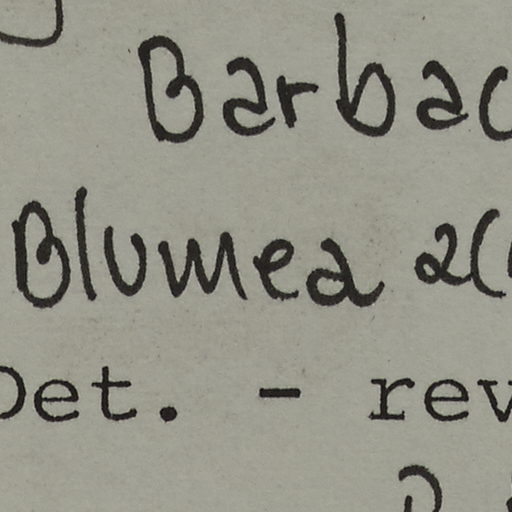 Barbac
Blumea 2(
Det. - rev